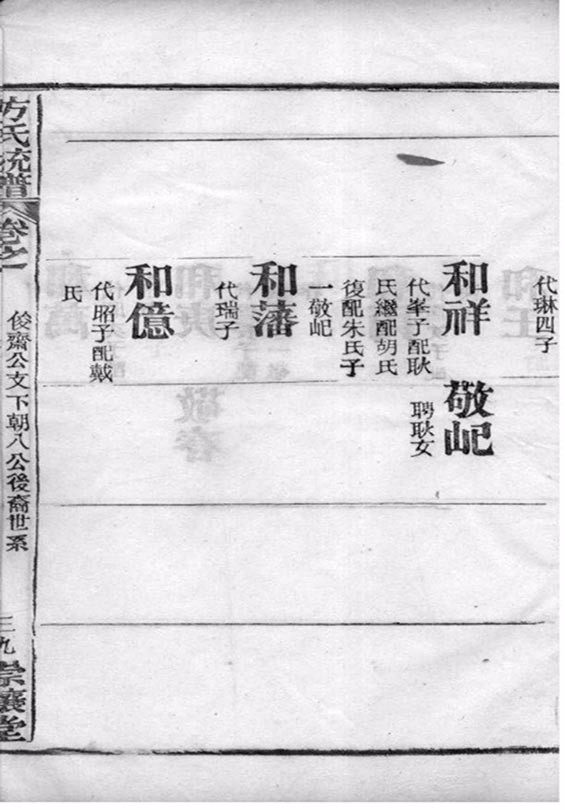 代琳四子
和祥
代峯子配耿
氏繼配胡氏
復配朱氏子
一敬屺
敬屺
聘耿女
和藩
代瑞子
和億
代昭子配戴
氏
方氏统譜
卷之一
俊齋公文下朝八公後裔世系
三九
崇讓堂